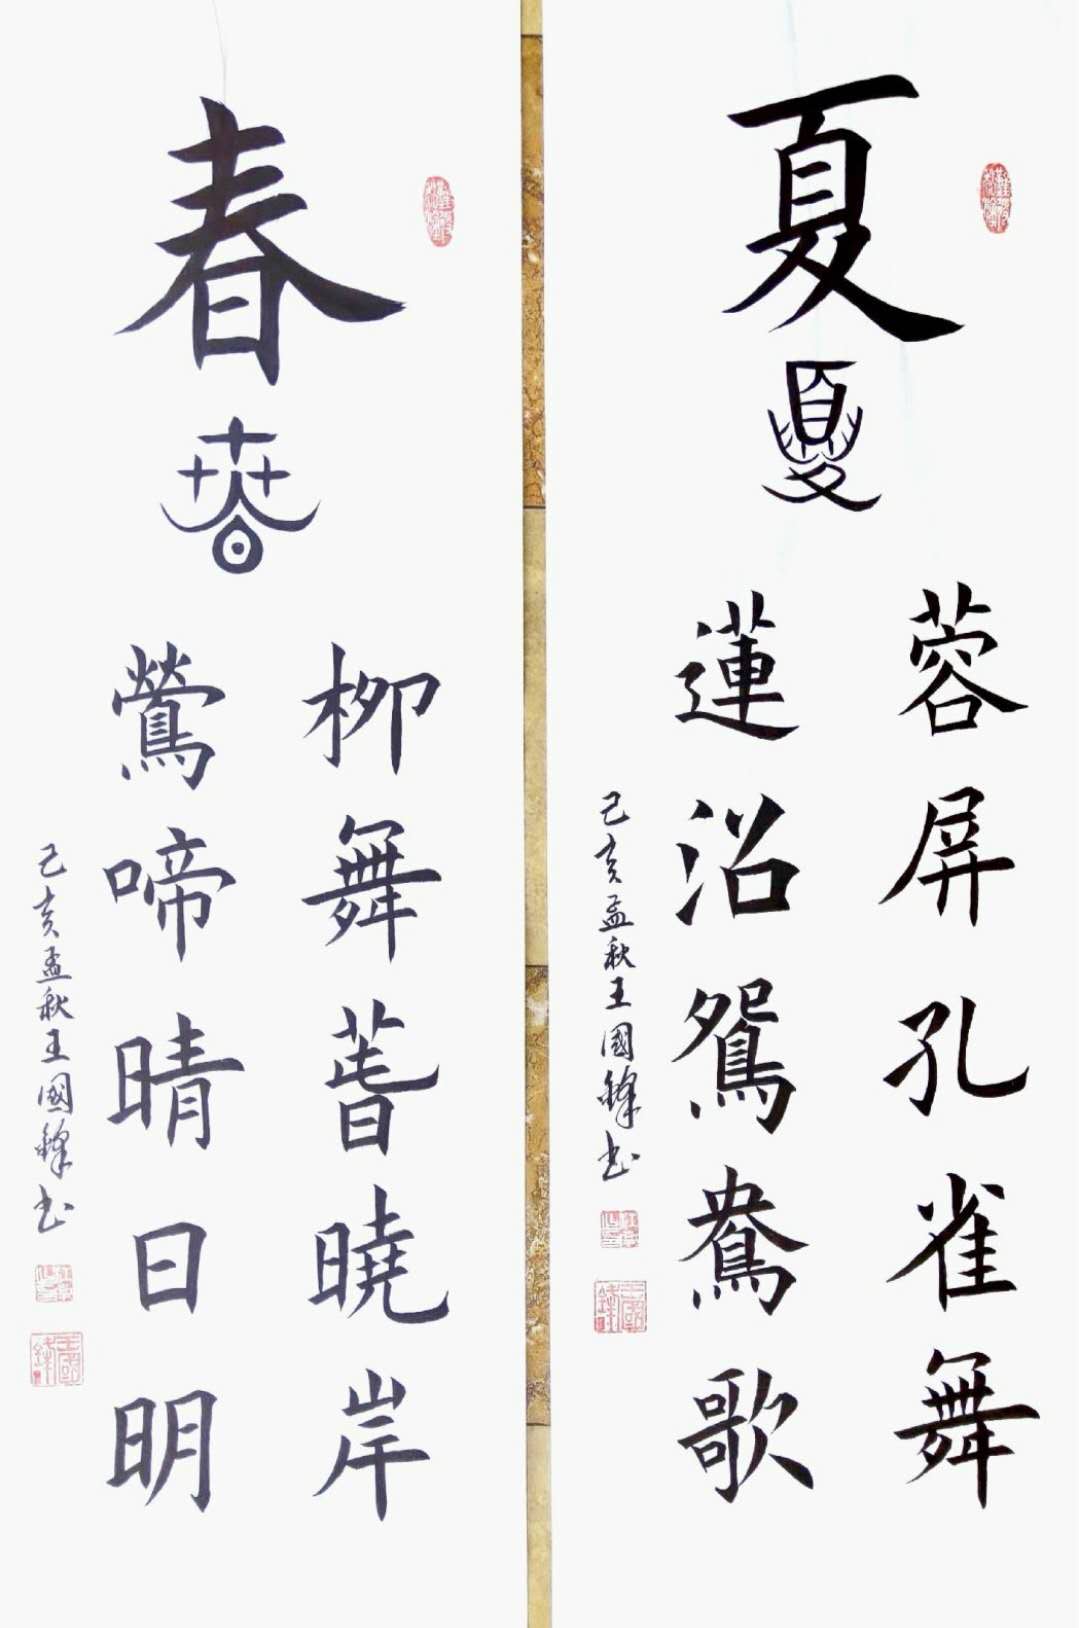 春
萅
柳舞萅曉岸
鶯啼晴日明
己亥孟秋王國鋒书
夏
夏
蓉屏孔雀舞
蓮沼鴛鴦歌
己亥孟秋王國鋒书